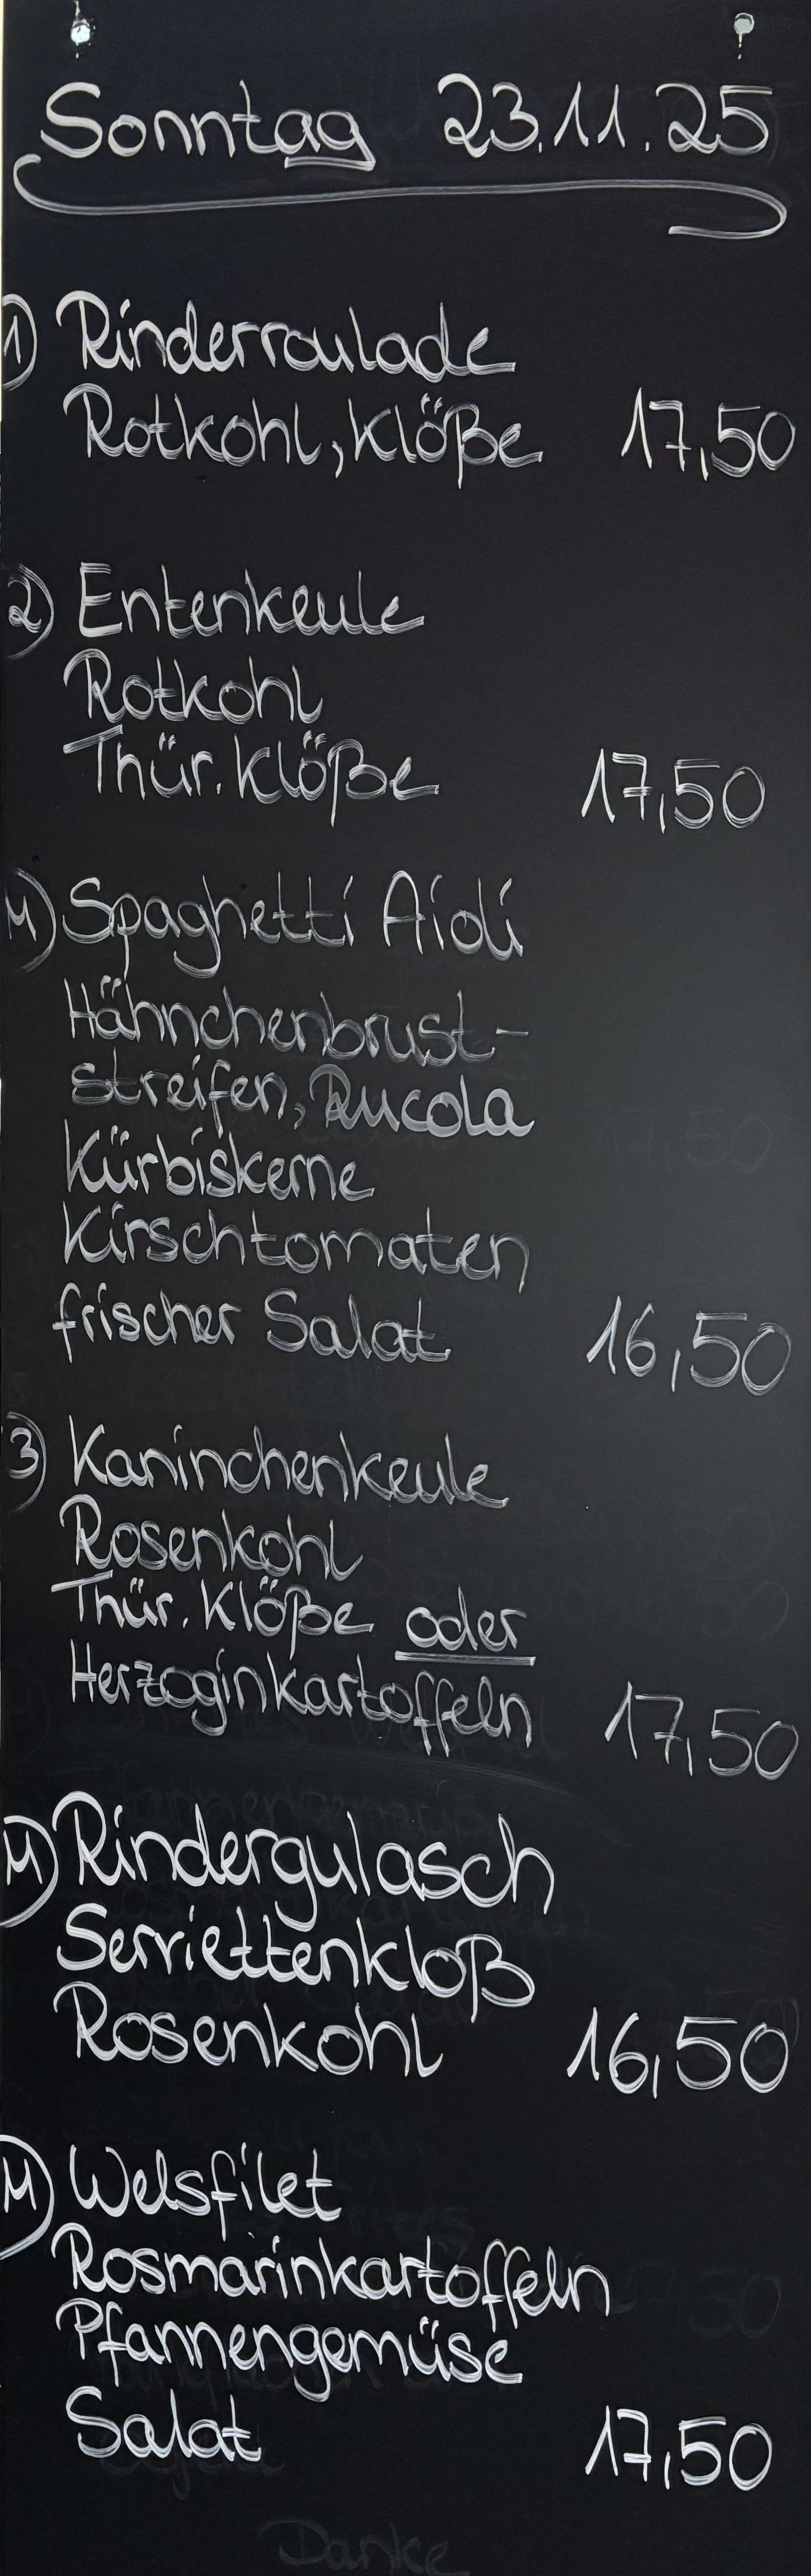 Sonntag 23.11.25
1) Rinderroulade
Rotkohl, Klöße 17,50
2) Entenkeule
Rotkohl
Thür. Klöße 17,50
M) Spaghetti Aioli
Hähnchenbrust-
streifen, Rucola
Kürbiskerne
Kirschtomaten
frischer Salat 16,50
3) Kaninchenkeule
Rosenkohl
Thür. Klöße oder
Herzoginkartoffeln 17,50
M) Rindergulasch
Serviettenkloß
Rosenkohl 16,50
M) Welsfilet
Rosmarinkartoffeln
Pfannengemüse
Salat 17,50
Danke